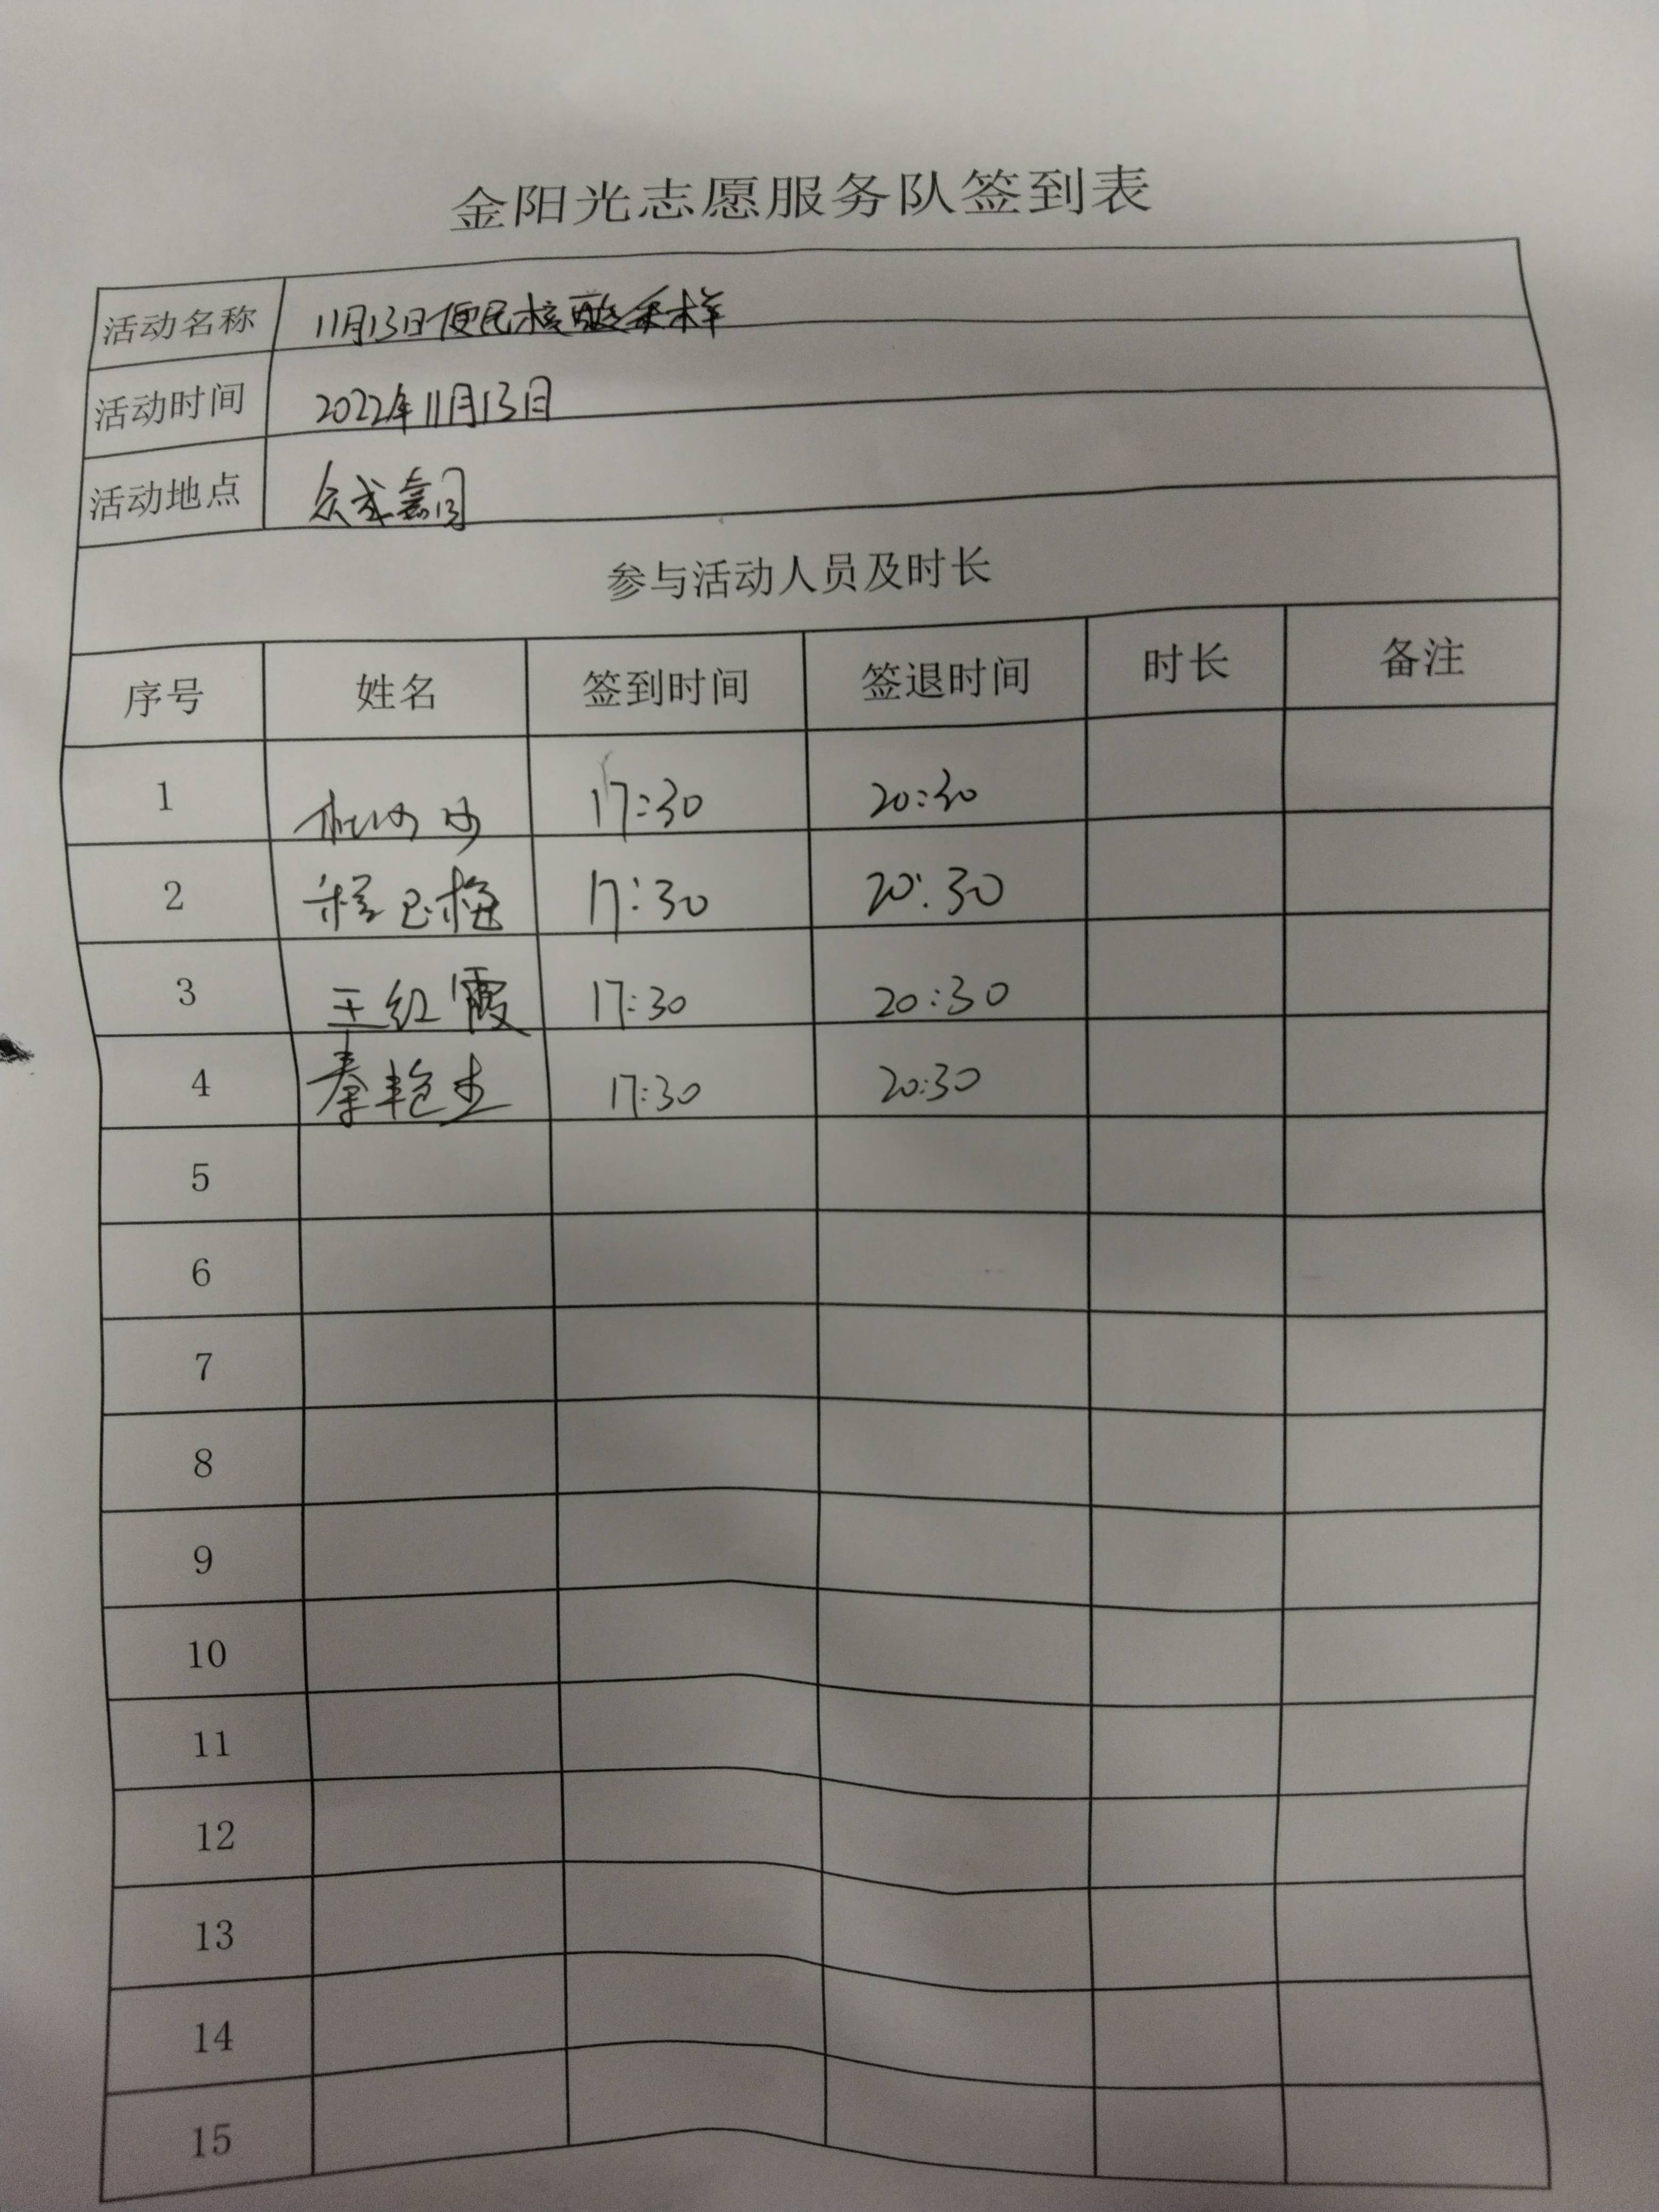 金阳光志愿服务队签到表
活动名称 11月13日便民核酸采样
活动时间 2022年11月13日
活动地点
参与活动人员及时长
序号 姓名 签到时间 签退时间 时长 备注
1 17:30 20:30
2 程巴梅 17:30 20:30
3 王红霞 17:30 20:30
4 秦艳 17:30 20:30
5
6
7
8
9
10
11
12
13
14
15